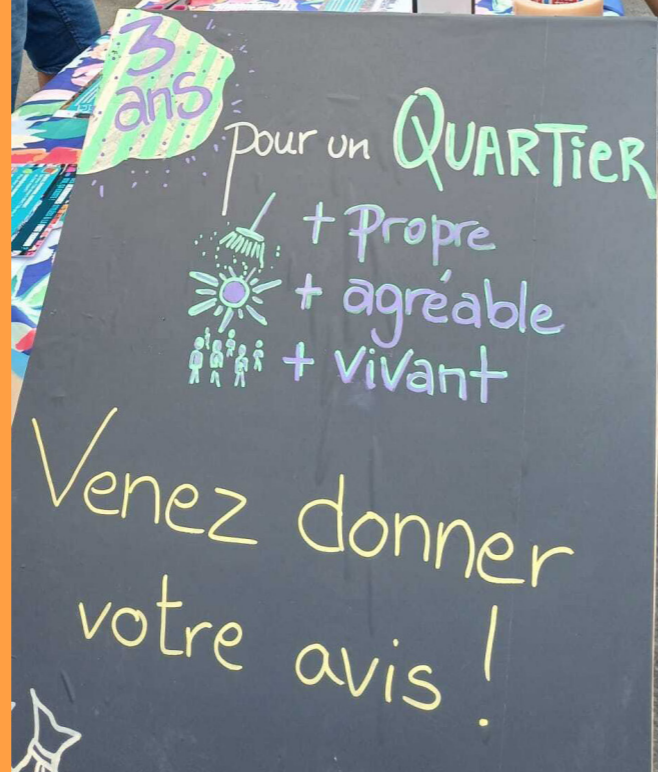 3
ans
pour un QUARTiER
+ Propre
+ agréable
+ vivant
Venez donner
votre avis !